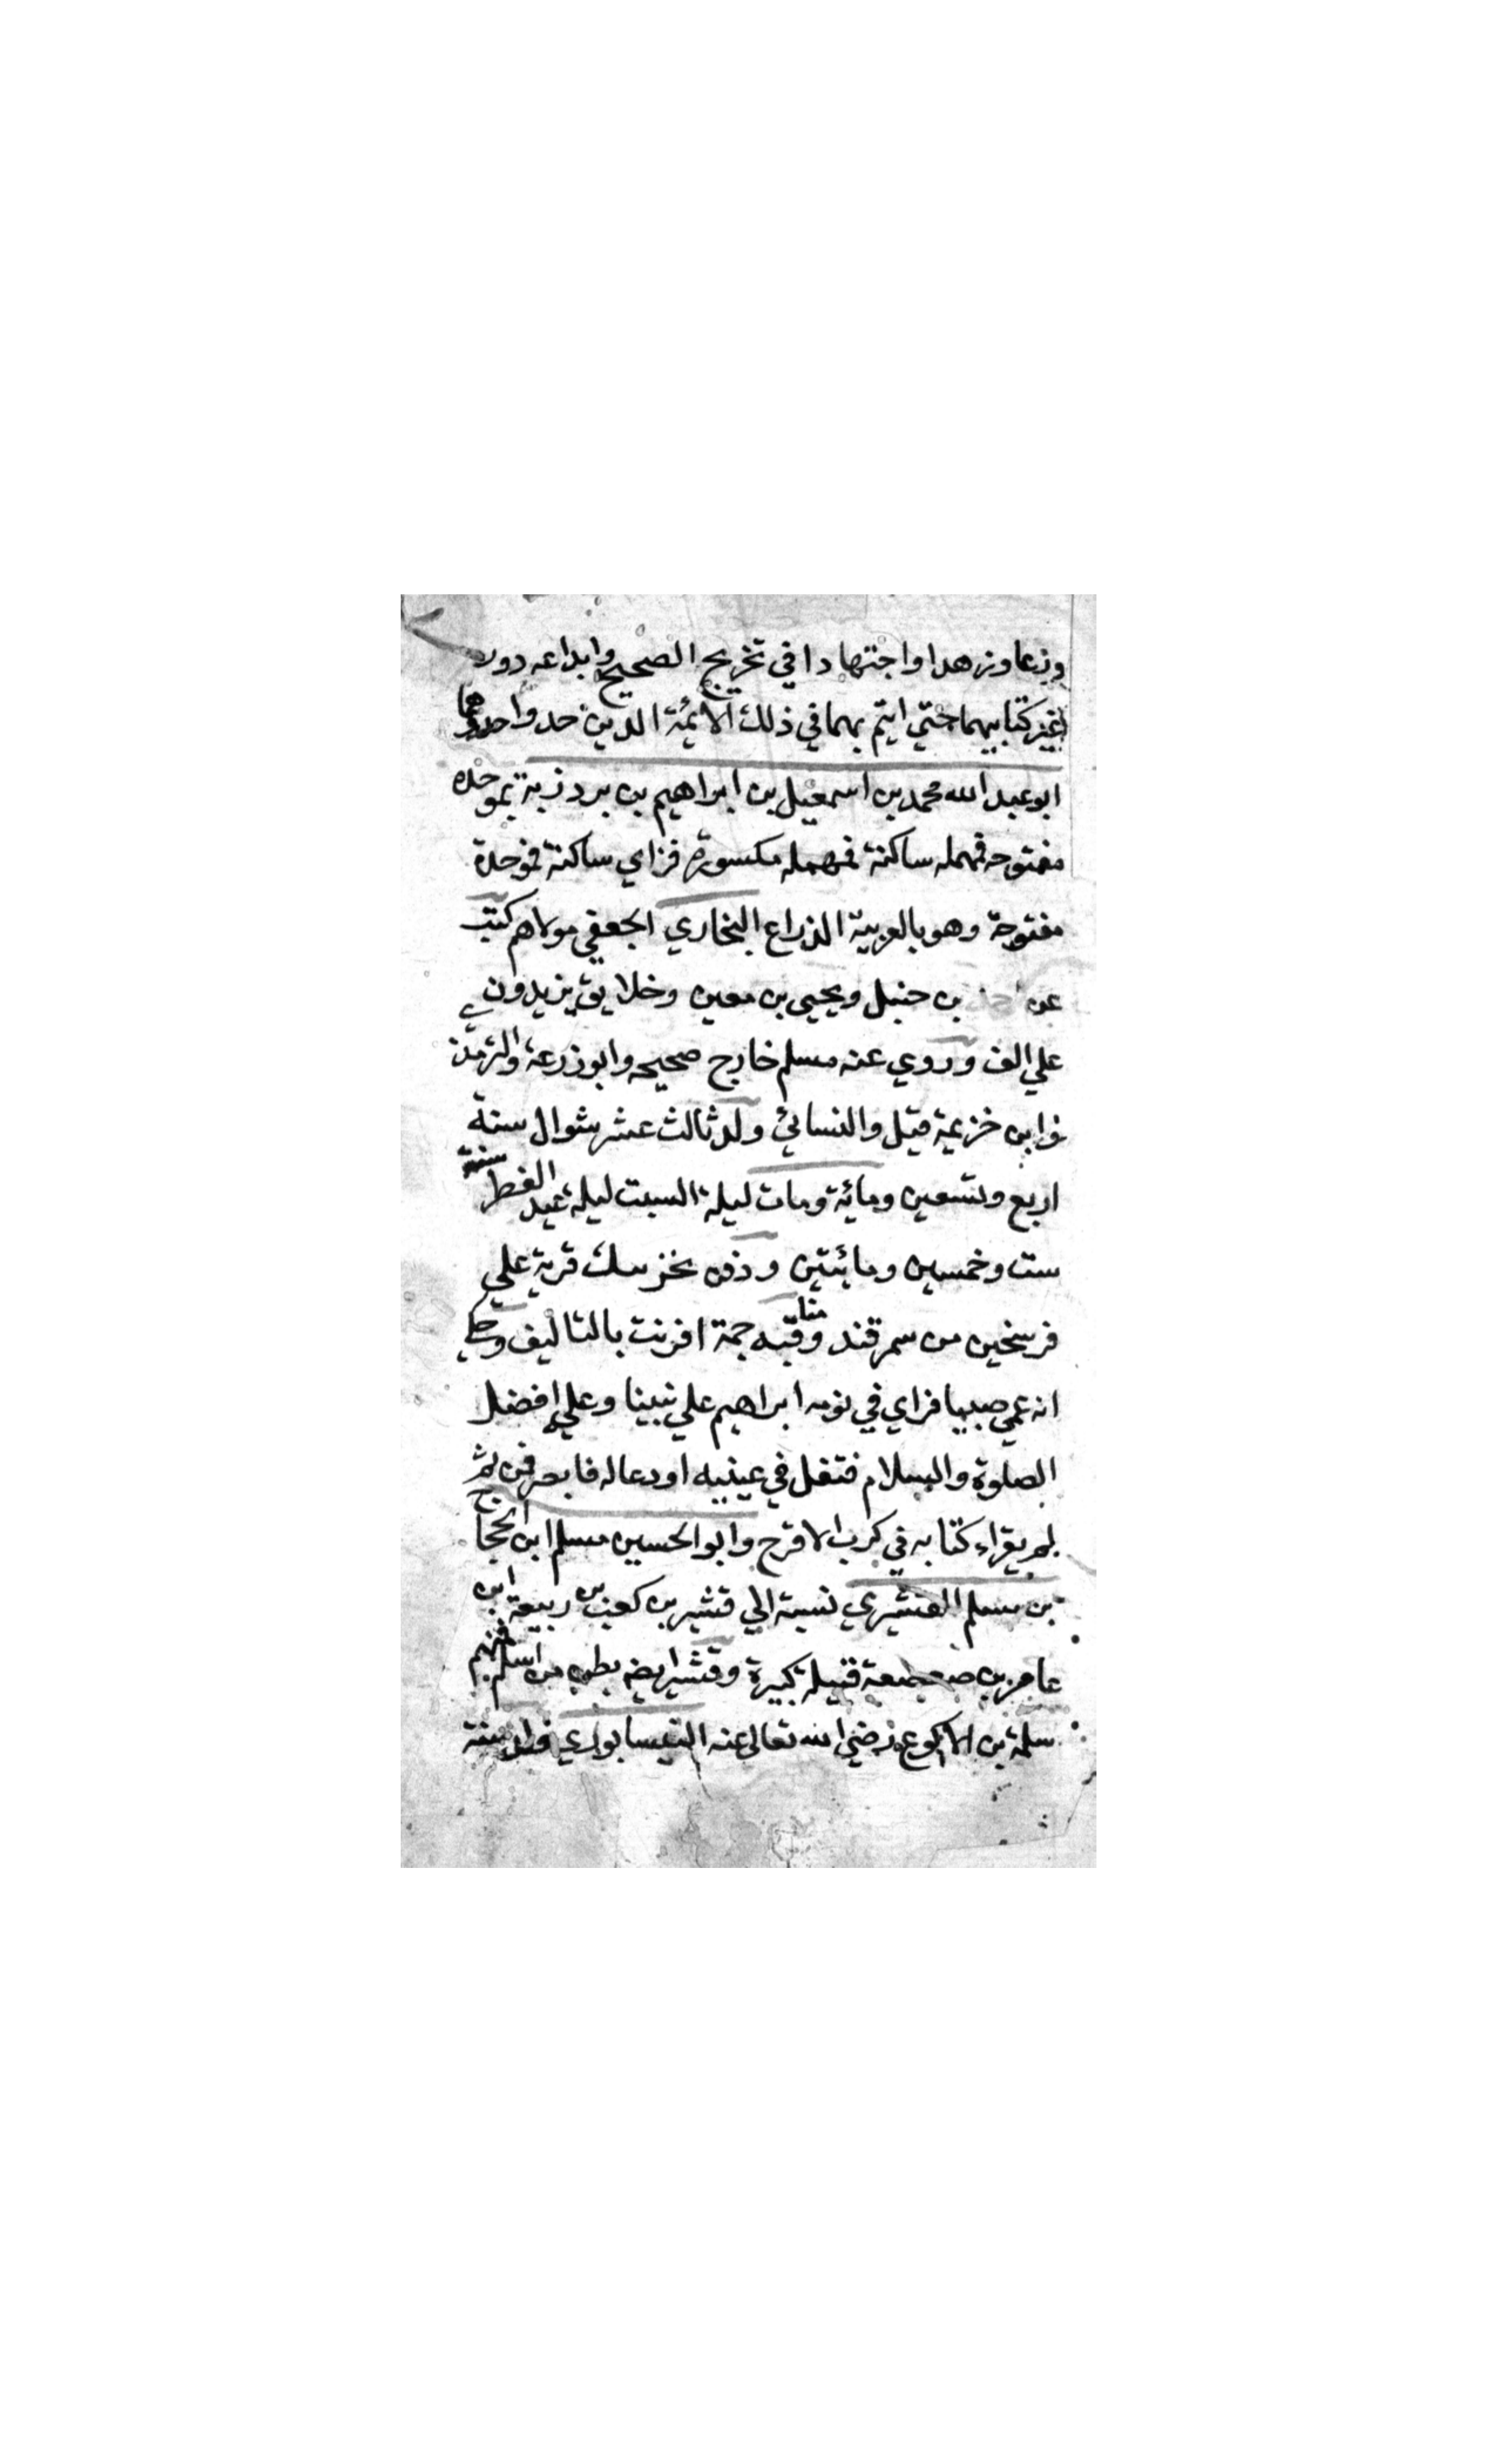 وزعا وزهدا واجتهادا في تخريج الصحيح وابداعه دون
غيره كتابيهما حتي ايتم بهما في ذلك الائمة الذين حدوا حدوهما
ابو عبد الله محمد بن اسمعيل بن ابراهيم بن بردزبة بموحده
مفتوحه فمهمله ساكنة فمهمله مكسورة فزاي ساكنة فموحدة
مفتوحة وهو بالعربية الذراع البخاري الجعفي مولاهم كتب
عن بن حنبل ويحيي بن معين وخلايق يزيدون
علي الف وروي عنه مسلم خارج صحيحه وابو زرعة والترمذي
وابن خزيمة قيل والنسائي ولد ثالث عشر شوال سنة
اربع وتسعين ومائة ومات ليلة السبت ليلة عيد الفطر سنة
ست وخمسين ومائيتين ودفن بخرتنك قرية علي
فرسخين من سمرقند ومناقبه جمة افردت بالتاليف
انه عمي صبيا فراي في نومه ابراهيم علي نبينا وعليه افضل
الصلوة والسلام فتفل في عينيه او دعا له فابصر فمن ثم
لم يقراء كتابه في كرب الا فرج وابو الحسين مسلم ابن الحجاج
بن مسلم القشيري نسبة الي قشير بن كعب بن ربيعة ابن
عامر بن صعصعة قبيلة كبيرة وقشير ايضه بطن من اسلم منهم
سلمة بن الاكوع رضي الله تعالي عنه النيسابوري ولد سنة